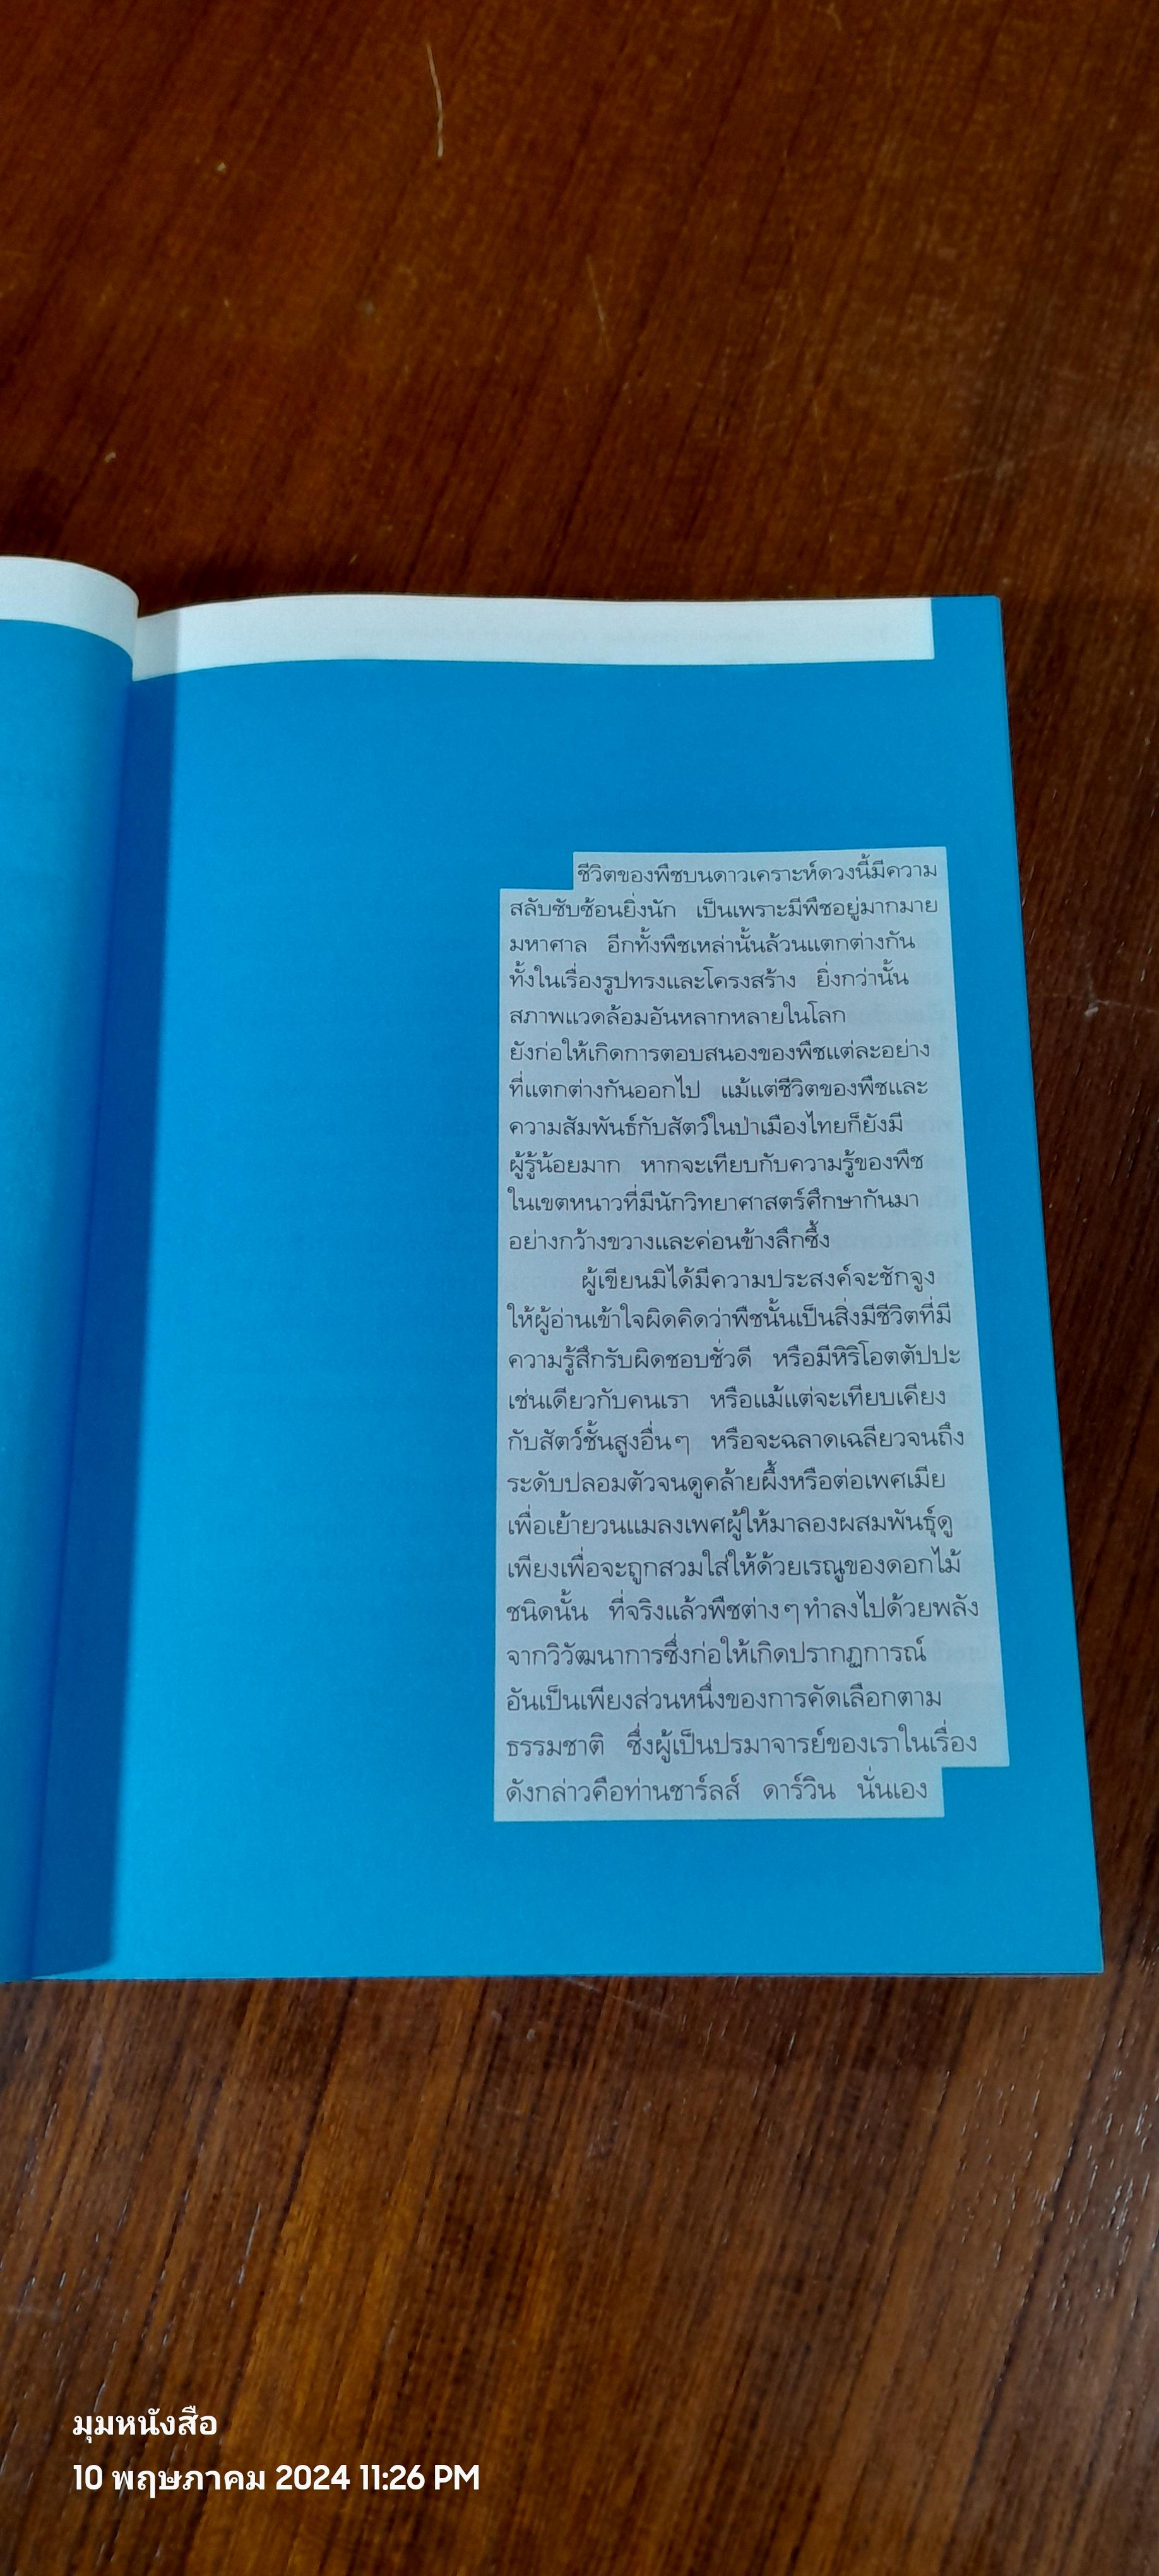 ชีวิตของพืชบนดาวเคราะห์ดวงนี้มีความ
สลับซับซ้อนยิ่งนัก เป็นเพราะมีพืชอยู่มากมาย
มหาศาล อีกทั้งพืชเหล่านั้นล้วนแตกต่างกัน
ทั้งในเรื่องรูปทรงและโครงสร้าง ยิ่งกว่านั้น
สภาพแวดล้อมอันหลากหลายในโลก
ยังก่อให้เกิดการตอบสนองของพืชแต่ละอย่าง
ที่แตกต่างกันออกไป แม้แต่ชีวิตของพืชและ
ความสัมพันธ์กับสัตว์ในป่าเมืองไทยก็ยังมี
ผู้รู้น้อยมาก หากจะเทียบกับความรู้ของพืช
ในเขตหนาวที่มีนักวิทยาศาสตร์ศึกษากันมา
อย่างกว้างขวางและค่อนข้างลึกซึ้ง
ผู้เขียนมิได้มีความประสงค์จะชักจูง
ให้ผู้อ่านเข้าใจผิดคิดว่าพืชนั้นเป็นสิ่งมีชีวิตที่มี
ความรู้สึกรับผิดชอบชั่วดี หรือมีหิริโอตตัปปะ
เช่นเดียวกับคนเรา หรือแม้แต่จะเทียบเคียง
กับสัตว์ชั้นสูงอื่นๆ หรือจะฉลาดเฉลียวจนถึง
ระดับปลอมตัวจนดูคล้ายผึ้งหรือต่อเพศเมีย
เพื่อเย้ายวนแมลงเพศผู้ให้มาลองผสมพันธุ์ดู
เพียงเพื่อจะถูกสวมใส่ให้ด้วยเรณูของดอกไม้
ชนิดนั้น ที่จริงแล้วพืชต่างๆทำลงไปด้วยพลัง
จากวิวัฒนาการซึ่งก่อให้เกิดปรากฏการณ์
อันเป็นเพียงส่วนหนึ่งของการคัดเลือกตาม
ธรรมชาติ ซึ่งผู้เป็นปรมาจารย์ของเราในเรื่อง
ดังกล่าวคือท่านชาร์ลส์ ดาร์วิน นั่นเอง
มุมหนังสือ
10 พฤษภาคม 2024 11:26 PM